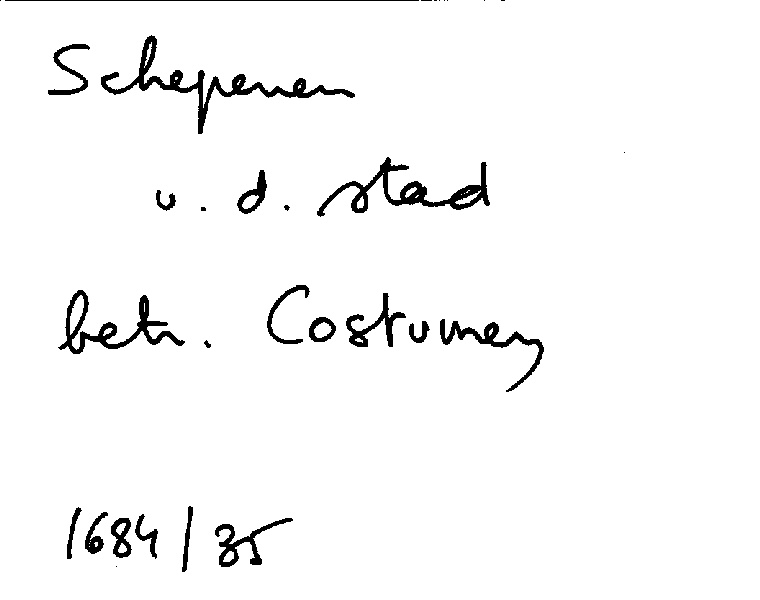 Schepenen
v. d. stad
betr. Costumen
1684/35